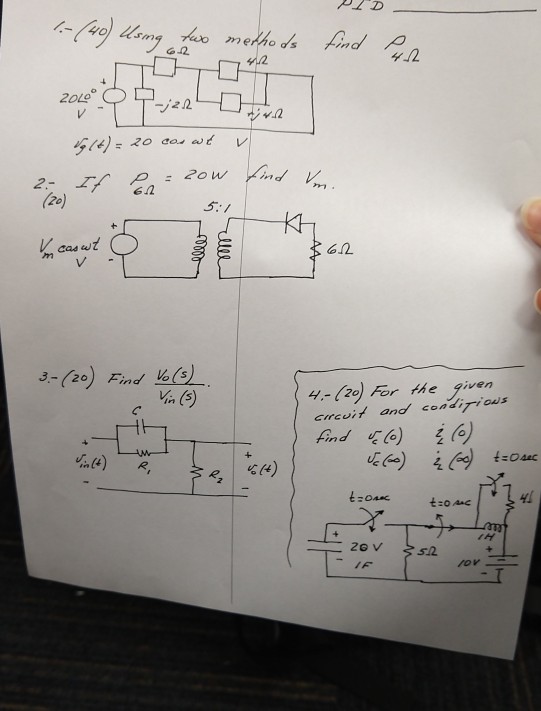 PID
1.- (40) Using two methods find P4Ω
6Ω
4Ω
20∠0°
V
+
-
-j2Ω
+j4Ω
vg(t) = 20 cos wt V
2.- If P6Ω = 20W find Vm.
(20)
5:1
+
Vm cos wt
V
-
6Ω
3.- (20) Find Vo(s)/Vin(s).
C
+
vin(t)
-
R1
R2
+
vo(t)
-
4.- (20) For the given
circuit and conditions
find vc(0) iL(0)
vc(∞) iL(∞)
t=0 sec
t=0 sec
t=0 sec
4Ω
+
20 V
-
1F
5Ω
1H
+
10V
-